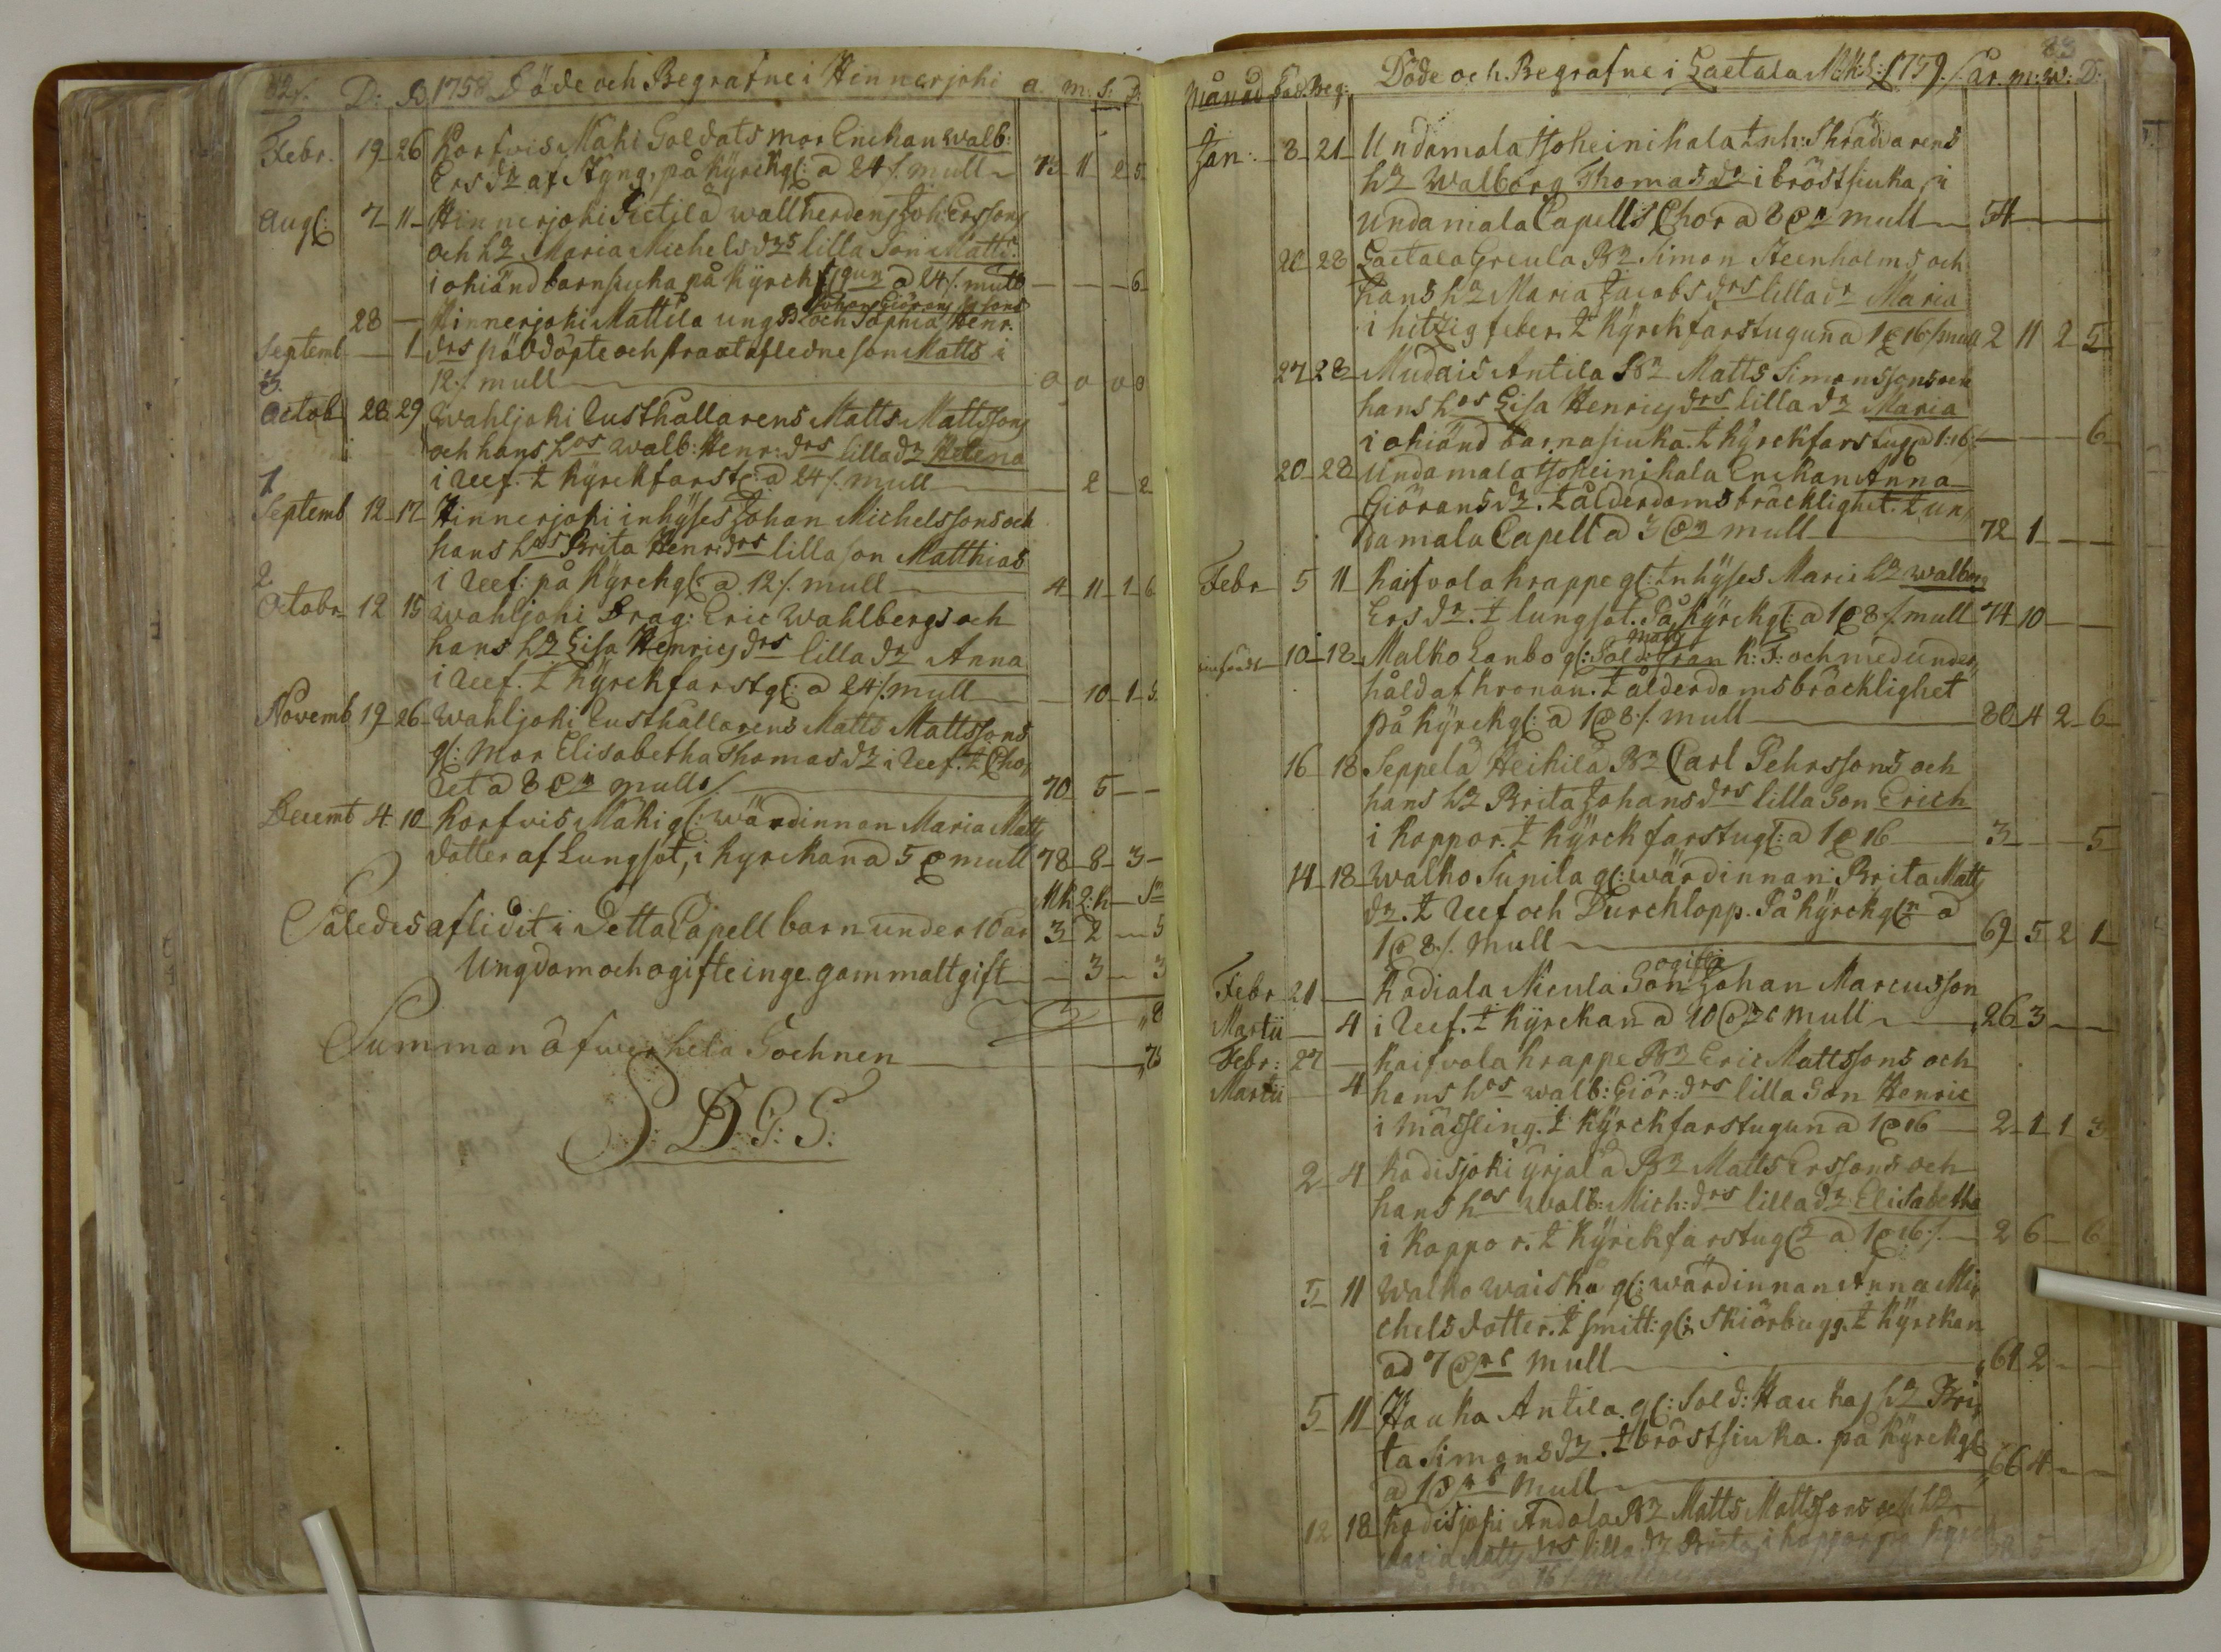 82. D: B 1758 Döde och Begrafne i Hinnerjoki a. m: S: D:
Febr. 19 26 Korfvis Mäki Soldats mor Enckan Walb:
Ers dr af Styng, på Kyrckg: a 24 /. mull 73 11 2 5
Aug: 7 11 Hinnerjoki Sictilä wallherdens Joh: Erssons
och h: Maria Michels drs lilla Son Matts.
i okiänd barnsiuka på Kyrck a 24 /. mull 6
Johans Giörans sons
28 Hinnerjoki Mattila ung B och Sophia Henr.
Septemb 1 drs nöddöpte och straxt afledne son Matts i
3. 12 /. mull 0 0 0 0
Octob 28 29 Wahljoki Rusthållarens Matts Mattssons
och hans hos Walb: Henr: drs lilla dr Helena
1 i Reef. i Kyrckfarst: a 24 /. mull 2 2
Septemb 12 17 Hinnerjoki inhyses Johan Michelssons och
hans hos Brita Henr: drs lilla son Matthias
2 i Reef: på Kyrckg: a 12 /. mull 4 11 1 6
Octobr 12 15 Wahljoki Drag: Eric Wahlbergs och
hans h: Lisa Henrics drs lilla dr Anna
i Reef. i Kyrckfarstg: a 24 /. mull 10 1 5
Novemb 19 26 Wahljoki Rusthållarens Matts Mattssons
g: Mor Elisabetha Thomas dr i Reef. i Cho,
ret a 8 mull 70 5
Decemb 4 10 Korfvis Mäki g: wärdinnan Maria Matts
dotter af Lungsot, i kyrckan a 5 mull 78 8 3
Mk 2: k Sm
Således aflidit i detta Capell barn under 10 år 3 2 5
Ungdom och ogifte inge. gammalt gift 3 3
8
Summan öfwer hela Sochnen
S: D: G: S:
83
Månad Död. Beg: Döde och Begrafne i Laetala 1759. år. m: w: D:
Jan: 8 21 Undamala Hoheinikala Inh: Skräddarens
h: Walborg Thomas dr i bröstsiuka, i
Undamala Capells Chor a 8 mull 54
28 Laetala Greula B: Simon Steenholms och
hans h: Maria Jacobs drs lilla dr Maria
i hitzig feber. i Kyrckfarstugun a 1 16 /. mull 2 11 2 5
27 28 Mudais Antila B: Matts Simonssons och
hans hos Lisa Henrics drs lilla dr Maria
i okiänd barnasiuka. i Kyrckfarstug: a 1: 16 6
20 28 Undamala Hoheinikala Enckan Anna
Giörans dr. i ålderdoms bräcklighet. i Un,
damala Capell a 3 mull 72 1
Febr 5 11 Kaifvola Krappe g: Inhyses Maris h: Walborg
Ers dr. i lungsot. På Kyrckg: a 1 8 /. mull 74 10
Matts
10 18 Malko Lanbo g: Sold: Gran k: F: och med under,
håld af kronan. i ålderdoms bräcklighet
på Kyrckg: a 1 8 /. mull 80 4 2 6
16 18 Seppelä Heikilä B: Carl Pehrssons och
hans h: Brita Johans drs lilla Son Erich
i koppor. i Kyrckfarstug: a 1 16 3 5
14 18 Walko Sunila g: wärdinnan Brita Matts
dr. i Reef och Durchlopp. På Kyrckg: a
1 8 /. mull 69 5 2 1
ogifta
Febr 21 Kodiala Nicula Son Johan Marcusson
Martii 4 i Reef. i Kyrckan a 10 mull 26 3
Febr: 27 Kaifvola Krappe B: Eric Mattssons och
Martii 4 hans hos Walb: Giör: drs lilla Son Henric
i Mässling. i Kyrckfarstugun a 1 16 2 1 1 3
2 4 Kodisjoki Yrjälä B: Matts Erssons och
hans hos Walb: Mich: drs lilla dr Elisabetha
i Koppor. i Kyrckfarstug: a 1 16 /. 2 6 6
5 11 Walko Waiska g: wärdinnan Anna Mi,
chels dotter. i smitt: g: Skiörbugg. i Kyrckan
ad 7 mull 61 2
5 11 Hauka Antila. g: Sold: Haukas h: Bri,
ta Simons dr. i bröstsiuka. på Kyrckg:
a 1 mull 66 4
12 18 Kodisjoki Andola B: Matts Mattssons och h:
Maria Matts drs lilla dr Brita, i koppor på Kyrck